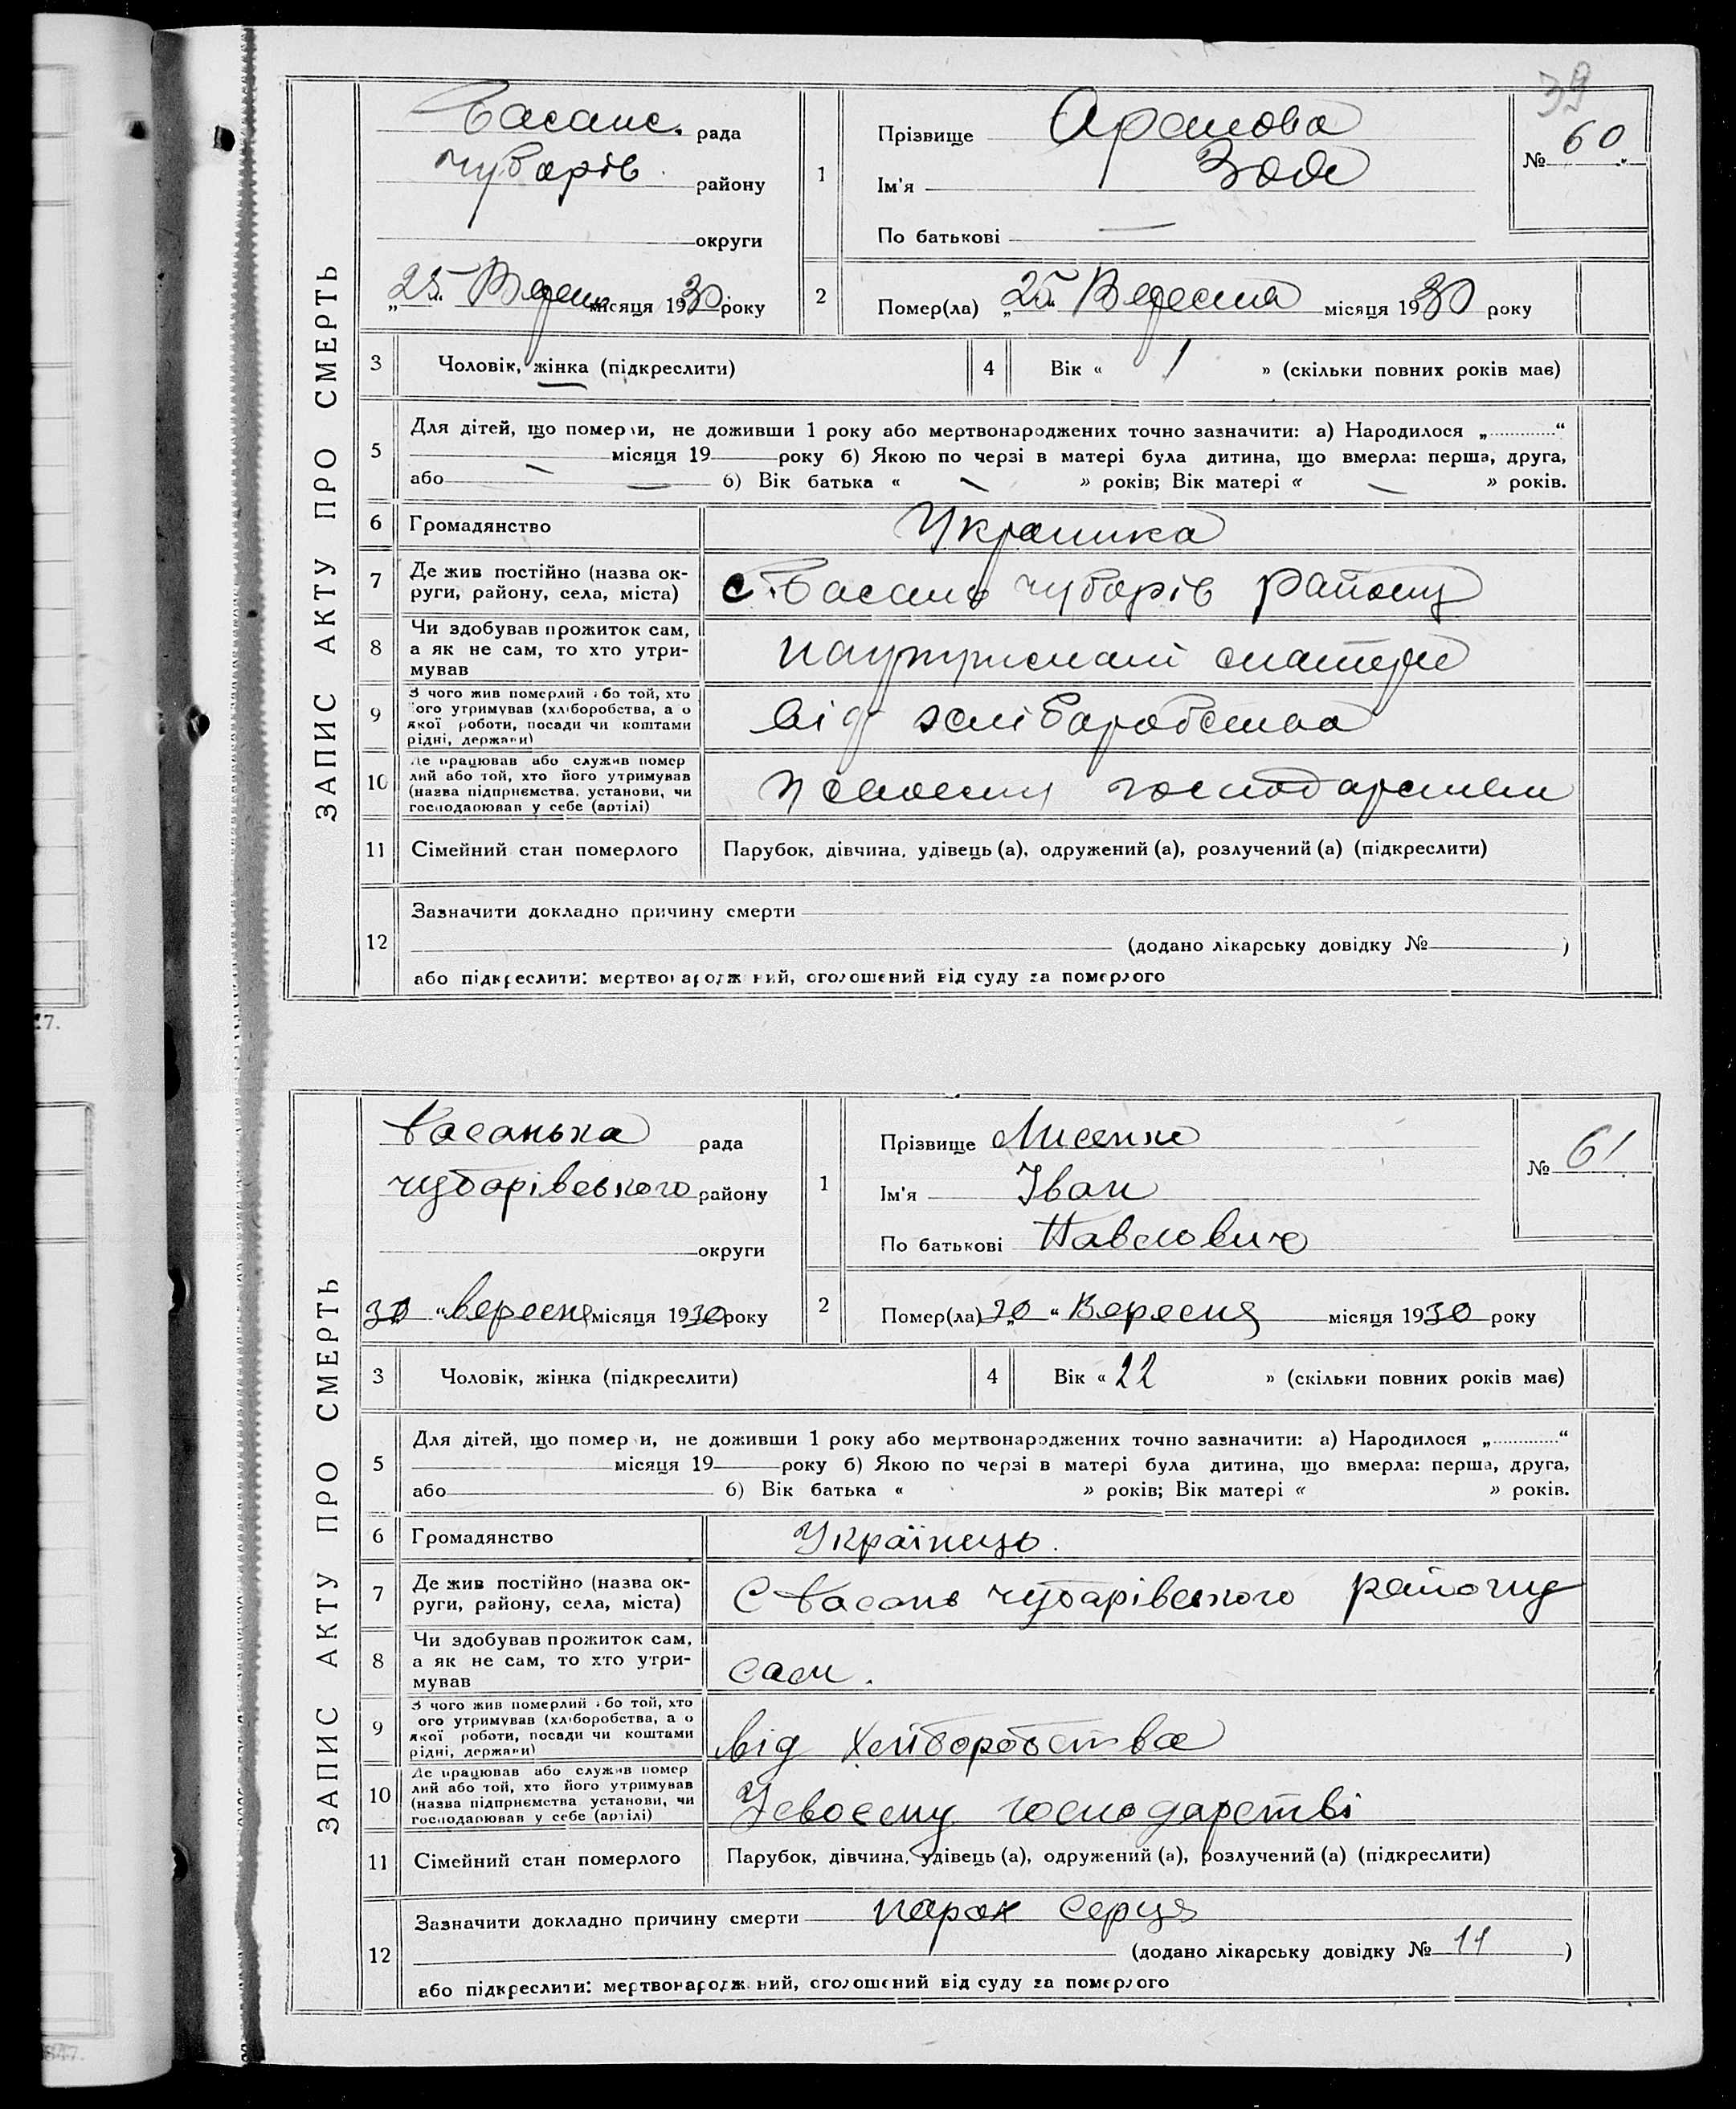 39
ЗАПИС АКТУ ПРО СМЕРТЬ
Басанс. рада
Чубарів району
округи
„25“ Вересн місяця 1930 року
1 Прізвище Арапова
Ім'я Зоя
По батькові —
№ 60
2 Помер(ла) „25“ Вересня місяця 1930 року
3 Чоловік, жінка (підкреслити)
4 Вік « 1 » (скільки повних років має)
5 Для дітей, що померли, не доживши 1 року або мертвонароджених точно зазначити: а) Народилося „............“
місяця 19 року б) Якою по черзі в матері була дитина, що вмерла: перша, друга,
або — б) Вік батька « — » років; Вік матері « — » років.
6 Громадянство Украинка
7 Де жив постійно (назва ок-
руги, району, села, міста) с. Басань Чубарів району
8 Чи здобував прожиток сам,
а як не сам, то хто утри-
мував
9 З чого жив померлий або той, хто
його утримував (хліборобства, а о
якої роботи, посади чи коштами
рідні, держави) від хліборобства
10 Де працював або служив помер
лий або той, хто його утримував
(назва підприємства, установи, чи
господарював у себе (артілі) у своєму господарстви
11 Сімейний стан померлого Парубок, дівчина, удівець (а), одружений (а), розлучений (а) (підкреслити)
12 Зазначити докладно причину смерти
(додано лікарську довідку № )
або підкреслити: мертвонароджений, оголошений від суду за померлого
ЗАПИС АКТУ ПРО СМЕРТЬ
Басанька рада
Чубарівського району
округи
30 “ вересня місяця 1930 року
1 Прізвище Лисенко
Ім'я Іван
По батькові Павлович
№ 61
2 Помер(ла) „20“ Вересня місяця 1930 року
3 Чоловік, жінка (підкреслити)
4 Вік « 22 » (скільки повних років має)
5 Для дітей, що померли, не доживши 1 року або мертвонароджених точно зазначити: а) Народилося „............“
місяця 19 року б) Якою по черзі в матері була дитина, що вмерла: перша, друга,
або б) Вік батька « » років; Вік матері « » років.
6 Громадянство Українець.
7 Де жив постійно (назва ок-
руги, району, села, міста) С Басань Чубарівського району
8 Чи здобував прожиток сам,
а як не сам, то хто утри-
мував сам.
9 З чого жив померлий або той, хто
ого утримував (хліборобства, а о
якої роботи, посади чи коштами
рідні, держави) від хліборобства
10 Де працював або служив помер
лий або той, хто його утримував
(назва підприємства установи, чи
господарював у себе (артілі) У своєму господарстві
11 Сімейний стан померлого Парубок, дівчина, удівець (а), одружений (а), розлучений (а) (підкреслити)
12 Зазначити докладно причину смерти порок серця
(додано лікарську довідку № 11 )
або підкреслити: мертвонароджений, оголошений від суду за померлого